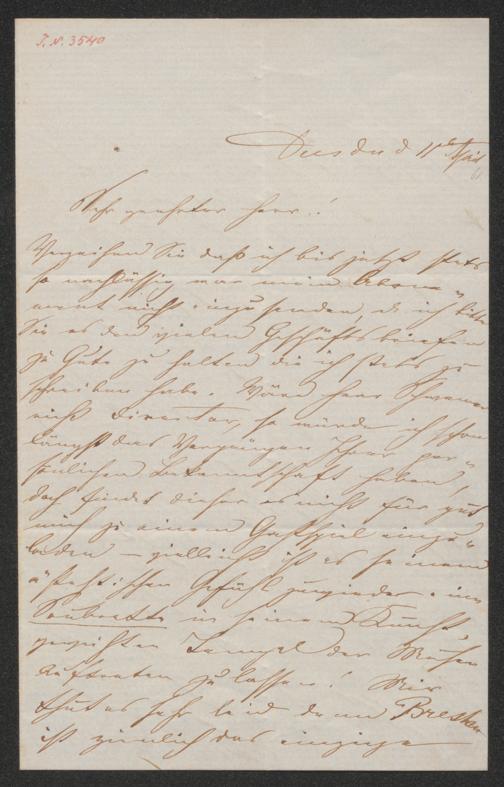 J. N. 3540
Dresden d 11t April
Sehr geehrter Herr!
Verzeihen Sie daß ich bis jetzt stets
so nachlässig war mein Abone-
ment nicht einzusenden, d. ich bitte
Sie es den vielen Geschäftsbriefen
zu Gute zu halten die ich stets zu
schreiben habe. Wäre Herr Schwemer
nicht Director, so würde ich schon
längst das Vergnügen Ihrer per-
sönlichen Bekanntschaft haben,
doch findet dieser es nicht für gut
mich zu einem Gastspiel einzu-
laden – vielleicht ist es seinem
ästhetischen Gefühl zuwieder eine
Soubrette in seinem Kunst
geweihten Tempel der Musen
auftreten zu lassen! Mir
thut es sehr leid denn Breslau
ist ziemlich das einzige